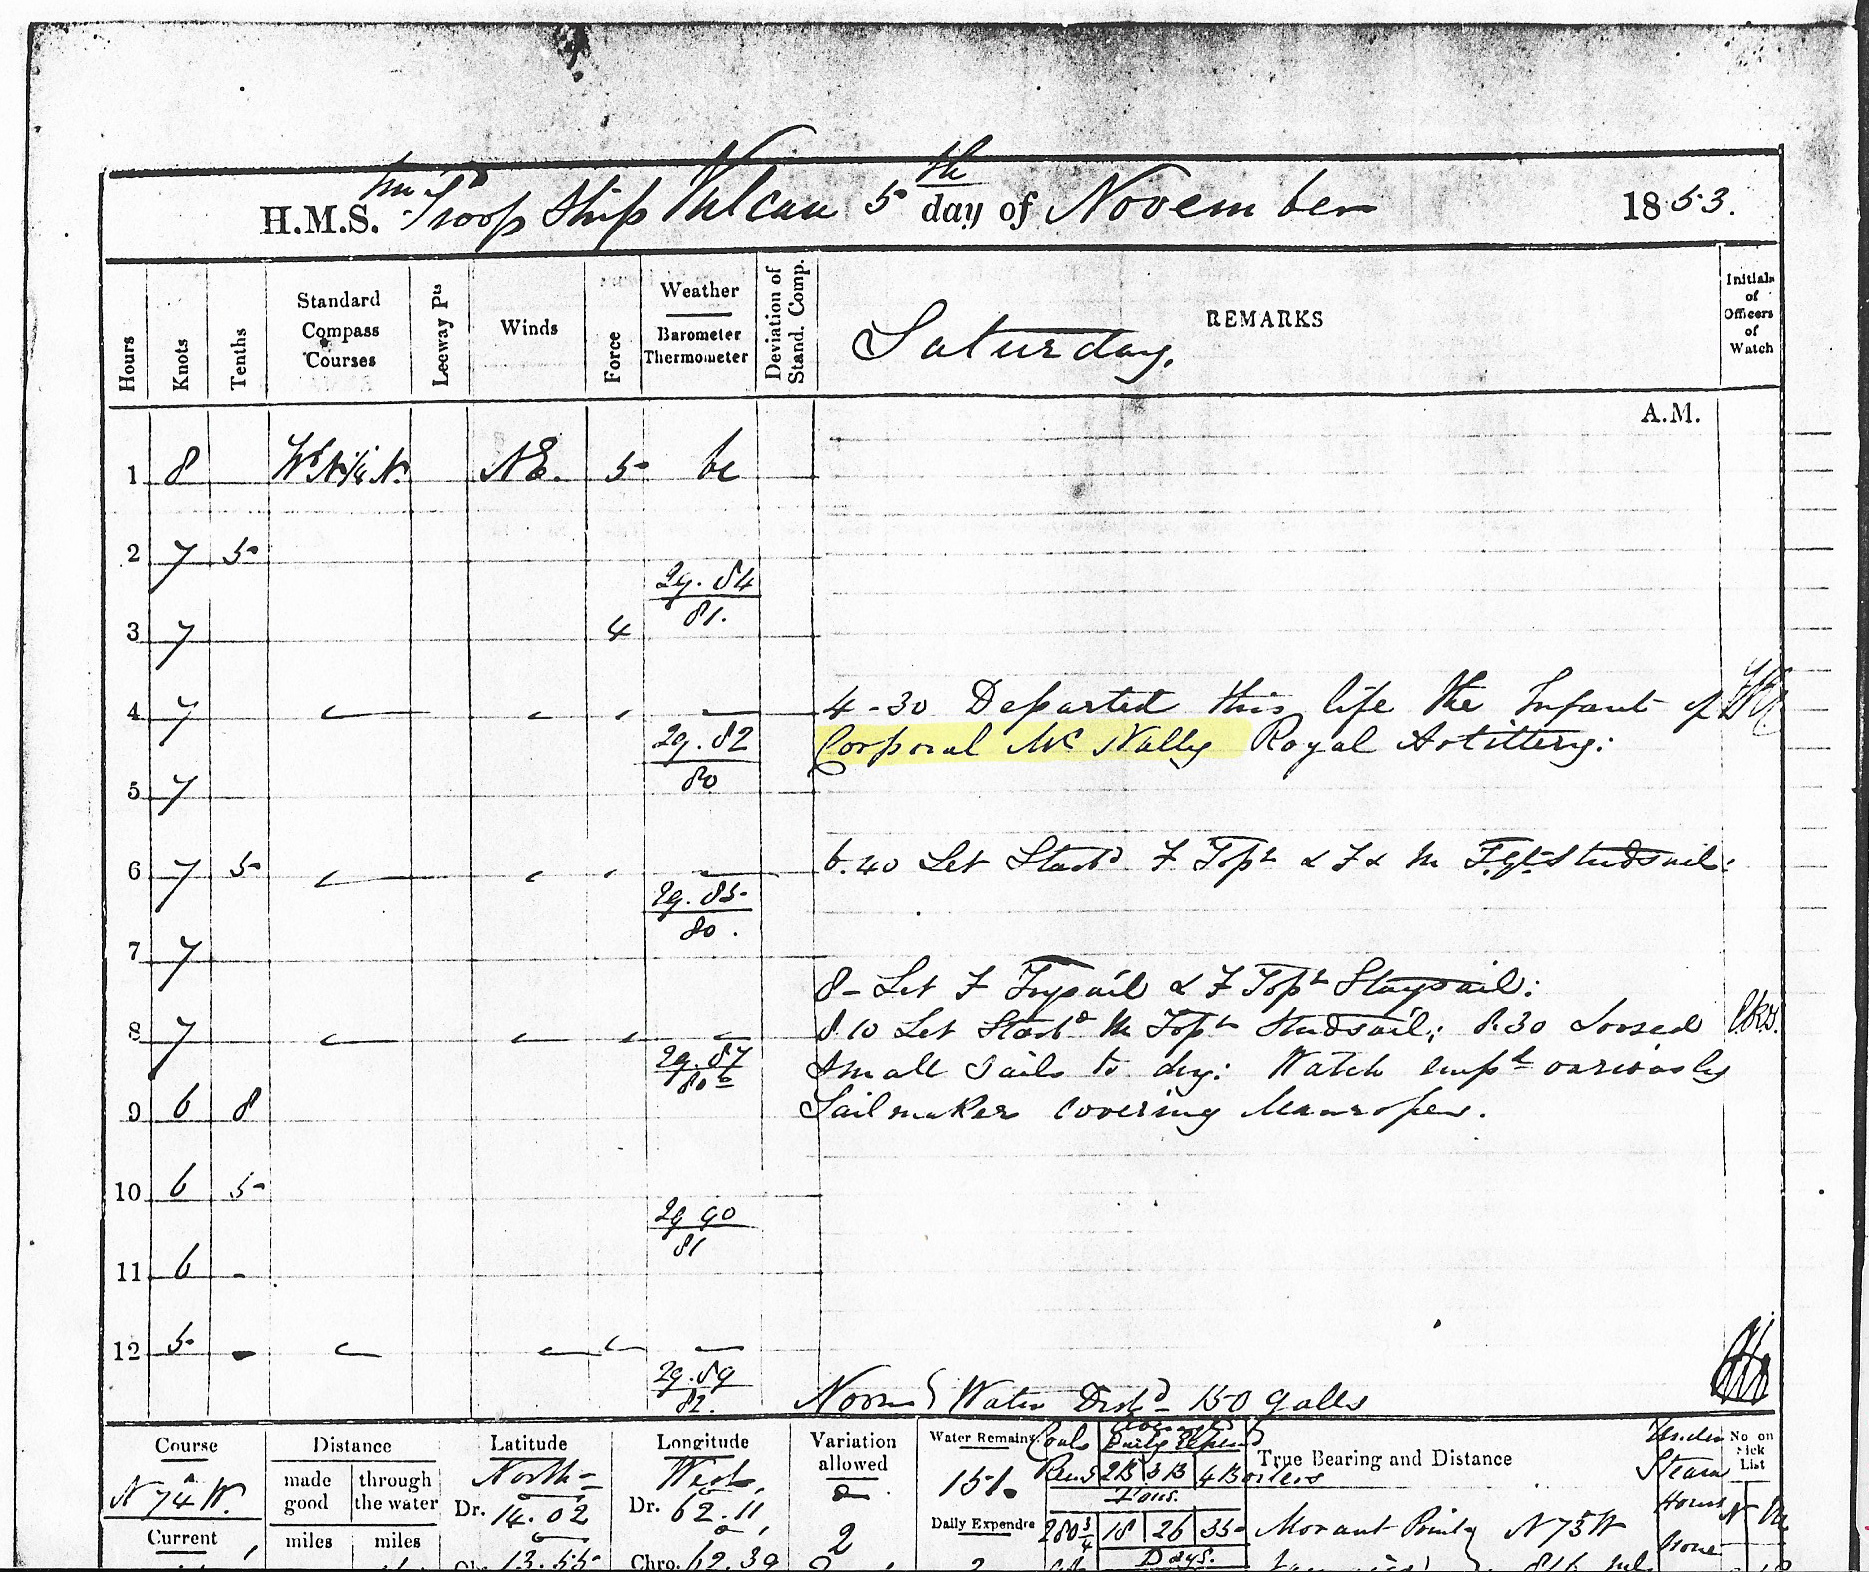 H.M.S. Troop Ship Vulcan 5th day of November 1853.
Hours Knots Tenths Standard Compass Courses Leeway Pts Winds Force Weather Barometer Thermometer Deviation of Stand. Comp. REMARKS Initials of Officers of Watch
Saturday.
A.M.
1 8 N.E. 5 bc
2 7 5
29.84
81.
3 7 4
4 7 4-30 Departed this life the Infant of
29.82 Corporal Mc Nally Royal Artillery:
80
5 7
6 7 5 6.40 Set Starbd F Topt & F & M T.gt Studsails:
29.85
80.
7 7
8- Set F Trysail & F Topt Staysail:
8 7 8.10 Set Starbd M Topt Studsail; 8.30 Loosed
29.87 small sails to dry: Watch empd variously
80
9 6 8 Sailmaker covering Manropes.
10 6 5
29 90
81
11 6 -
12 5 -
29.89
82.
Noon Water Distd 150 Galls
Course Distance Latitude Longitude Variation allowed Water Remaing Coals Daily Expend True Bearing and Distance Under Steam No on Sick List
made good through the water North West Remg 2B 3B 4 Boilers
N 74 W. Dr. 14.02 Dr. 62.11 151. Tons.
Current miles miles 2 Daily Expendre 280 3/4 18 26 35 Morant Point N 75 W Hours None
13.55 Chro. 62.39 Days. 816